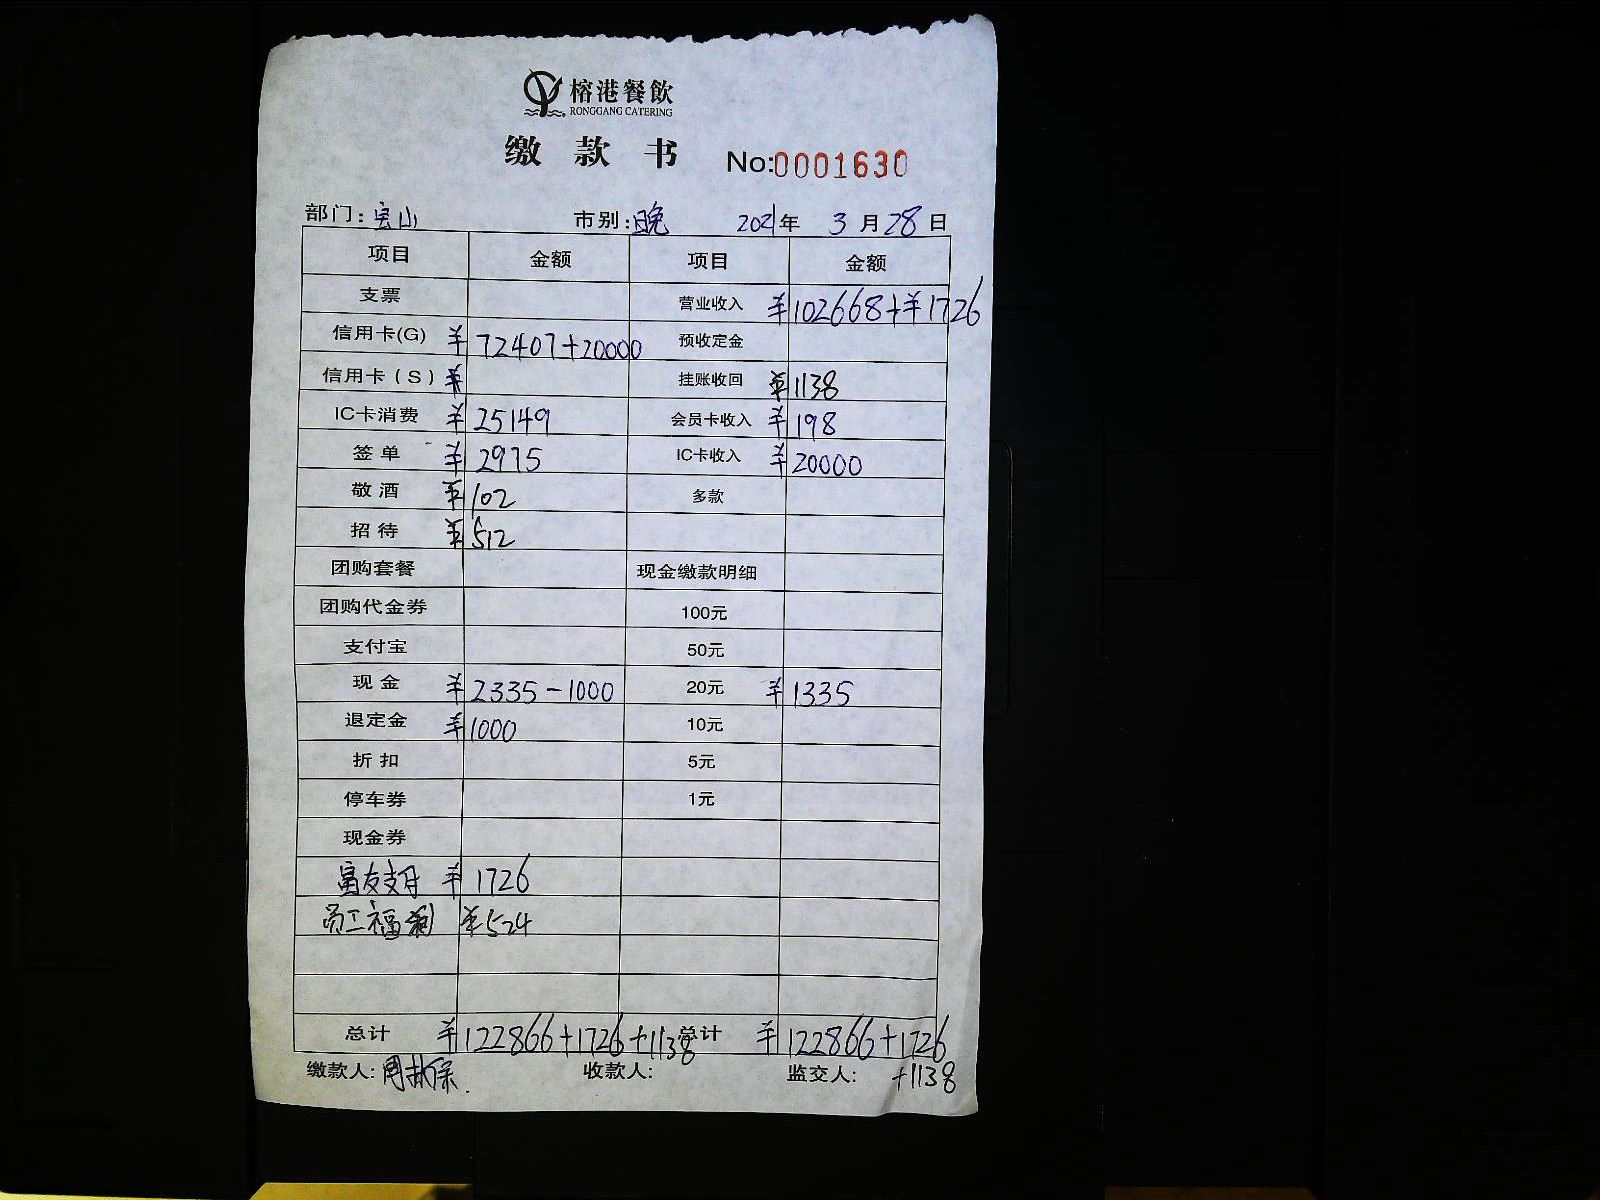 榕港餐飲
RONGGANG CATERING
缴 款 书 No:0001630
部门: 宝山 市别: 晚 2021年 3月28日
项目 金额 项目 金额
支票 营业收入 ¥102668+¥1726
信用卡(G) ¥72407+20000 预收定金
信用卡(S) ¥ 挂账收回 ¥1138
IC卡消费 ¥25149 会员卡收入 ¥198
签单 ¥2975 IC卡收入 ¥20000
敬酒 ¥102 多款
招待 ¥512
团购套餐 现金缴款明细
团购代金券 100元
支付宝 50元
现金 ¥2335-1000 20元 ¥1335
退定金 ¥1000 10元
折扣 5元
停车券 1元
现金券
富友支付 ¥1726
员工福利 ¥524
总计 ¥122866+1726+1138 总计 ¥122866+1726
+1138
缴款人: 收款人: 监交人: